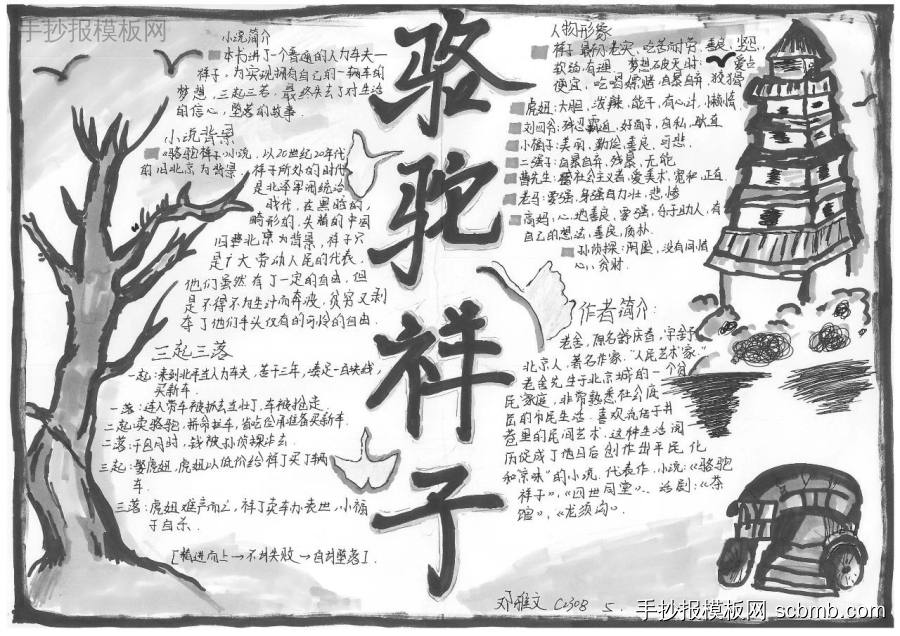 手抄报模板网
骆驼祥子
小说简介
本书讲了一个普通的人力车夫—
祥子,为实现拥有自己的一辆车的
梦想,三起三落,最终失去了对生活
的信心,堕落的故事.
小说背景
《骆驼祥子》小说,以20世纪20年代
的旧北京为背景.祥子所处的时代
是北洋军阀统治
时代,在黑暗的,
畸形的,失衡的中国
旧典北京为背景,祥子只
是广大劳动人民的代表,
他们虽然有了一定的自由,但
是不得不为生计而奔波,贫穷又剥
夺了他们手头仅有的可怜的自由.
三起三落
一起:来到北平当人力车夫,苦干三年,凑足一百块钱,
买新车.
一落:连人带车被抓去当壮丁,车被抢走.
二起:卖骆驼,拼命拉车,省吃俭用准备买新车
二落:干包月时,钱被孙侦探
三起:娶虎妞,虎妞以低价给祥子买了辆
车.
三落:虎妞难产而亡,祥子卖车办丧世,小福
子自杀.
[精进向上→不甘失败→自甘堕落].
人物形象
祥子:最初老实,吃苦耐劳,善良,坚忍,
梦想破灭时:
便宜,吃喝嫖赌,自暴自弃,狡猾
虎妞:大胆,泼辣,能干,有心计,懒惰
刘四爷:残忍霸道,好面子,自私,耿直
小福子:美丽,勤俭,善良,可悲.
二强子:自暴自弃,残暴,无能
曹先生:社会主义者,爱美术,宽和,正直
老马:要强,身强力壮,悲惨
高妈:心地善良,要强,乐于助人,有
自己的想法,善良,质朴.
孙侦探:没有同情
心,贪财.
作者简介:
老舍,原名舒庆春,字舍予
北京人.著名作家."人民艺术家."
老舍先生于北京城的一个贫
民家庭,非常熟悉社会底
层的市民生活.喜欢流传于井
巷里的民间艺术,这种生活阅
历促成了他日后创作出平民化
和"京味"的小说.代表作,小说:《骆驼
祥子》,《四世同堂》、话剧:《茶
馆》,《龙须沟》.
邓雅文 C2308 5.
手抄报模板网 scbmb.com